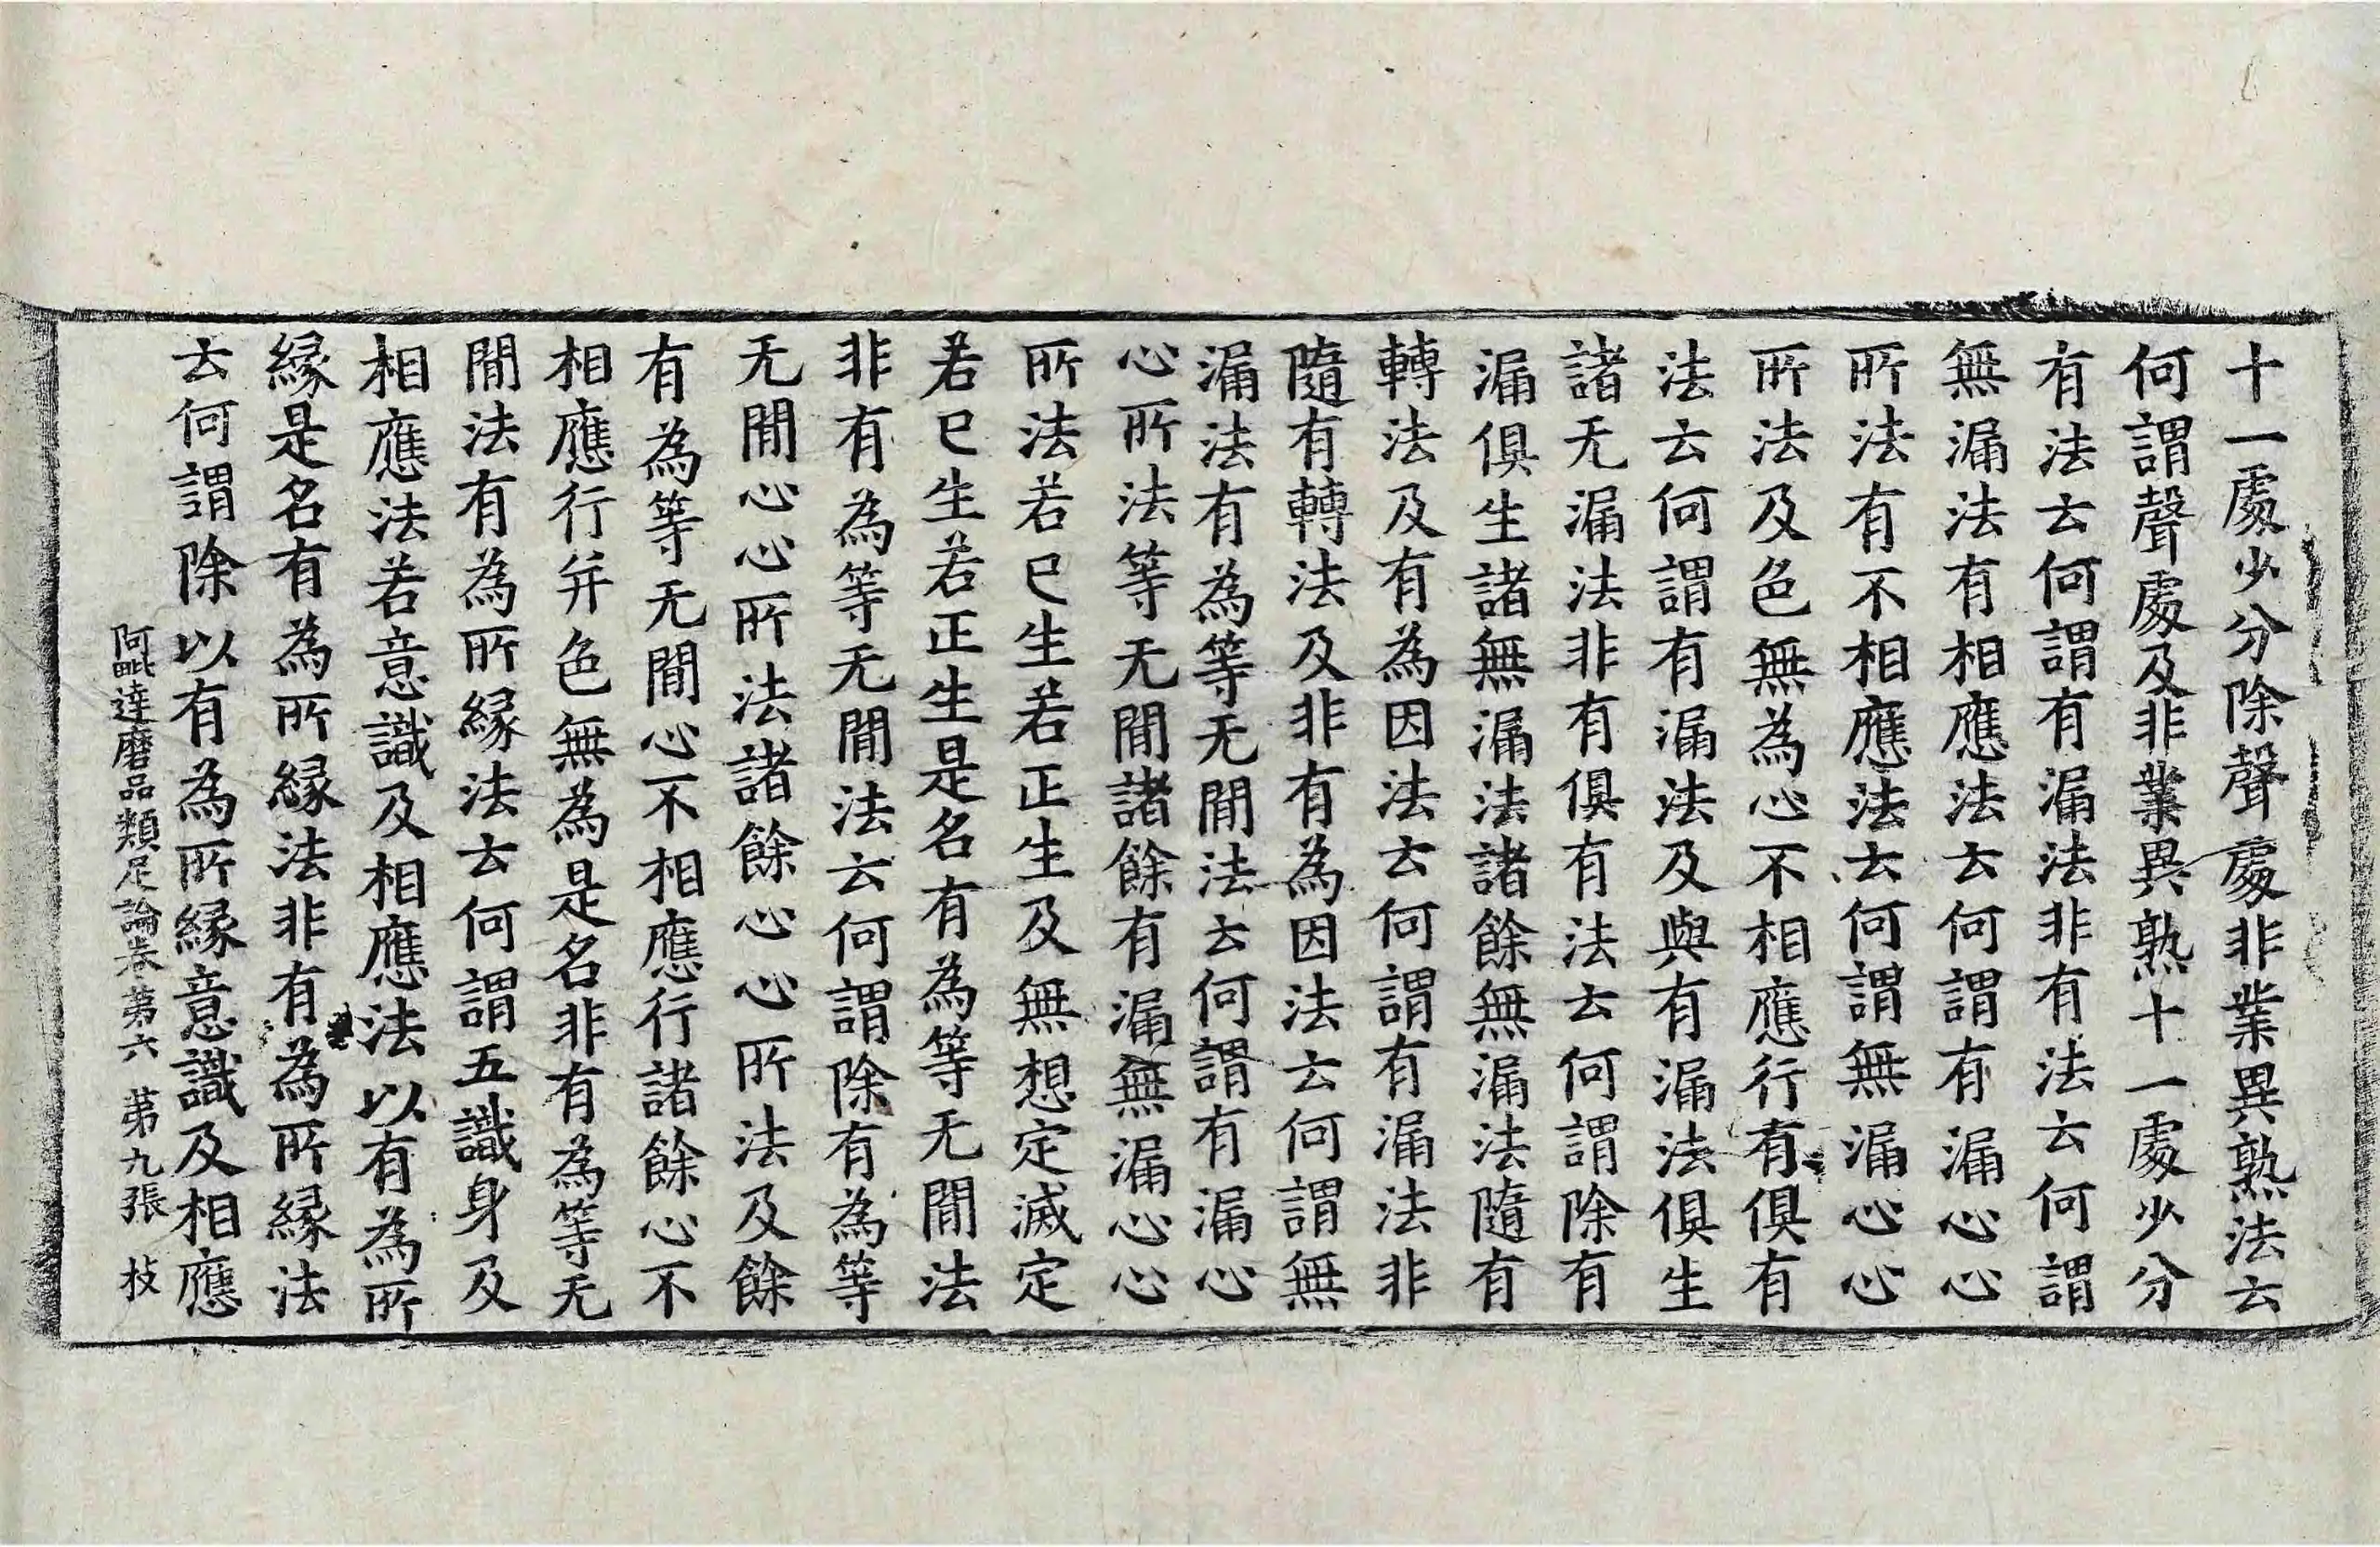 十一處少分除聲處非業異熟法云
何謂聲處及非業異熟十一處少分
有法云何謂有漏法非有法云何謂
無漏法有相應法云何謂有漏心心
所法有不相應法云何謂無漏心心
所法及色無為心不相應行有俱有
法云何謂有漏法及與有漏法俱生
諸无漏法非有俱有法云何謂除有
漏俱生諸無漏法諸餘無漏法隨有
轉法及有為因法云何謂有漏法非
隨有轉法及非有為因法云何謂無
漏法有為等无閒法云何謂有漏心
心所法等无閒諸餘有漏無漏心心
所法若已生若正生及無想定滅定
若已生若正生是名有為等无閒法
非有為等无閒法云何謂除有為等
无閒心心所法諸餘心心所法及餘
有為等无閒心不相應行諸餘心不
相應行并色無為是名非有為等无
閒法有為所緣法云何謂五識身及
相應法若意識及相應法以有為所
緣是名有為所緣法非有為所緣法
云何謂除以有為所緣意識及相應
阿毗達磨品類足論卷第六 第九張 枝